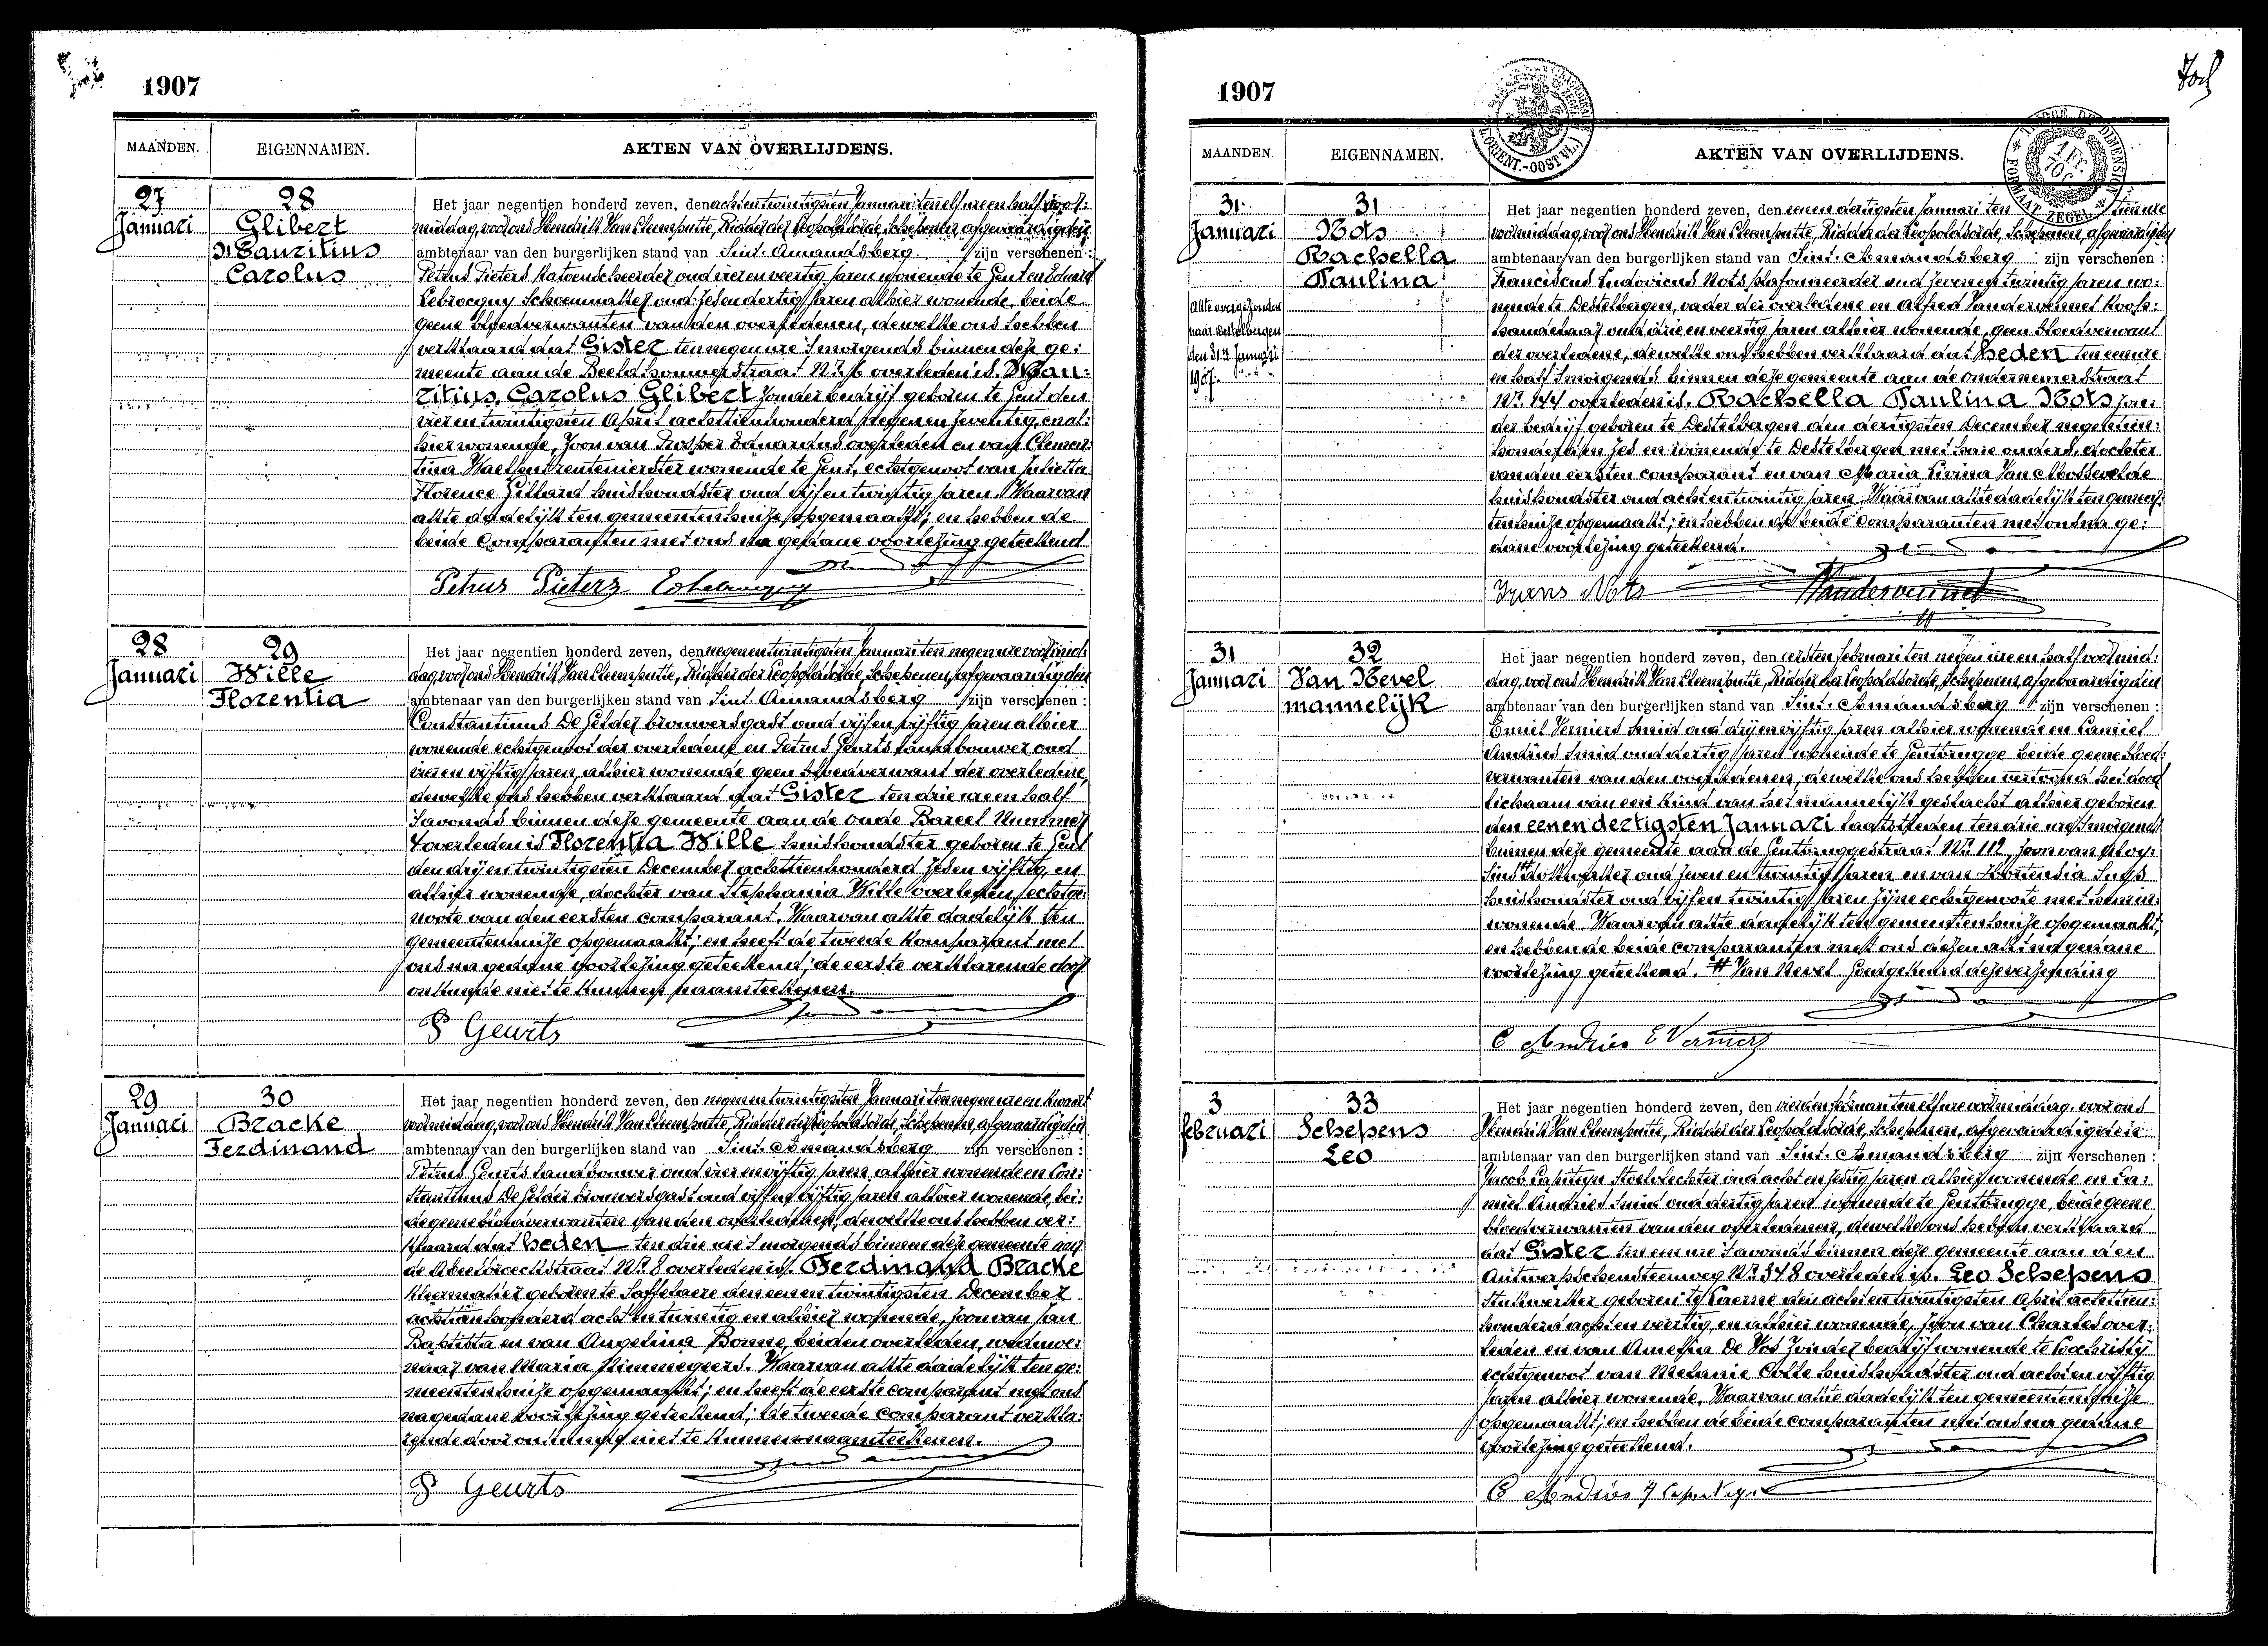 1907
MAANDEN. EIGENNAMEN. AKTEN VAN OVERLIJDENS.
27 Januari
28
Glibert
Mauritius
Carolus
Het jaar negentien honderd zeven, den acht en twintigsten Januari ten elf ure en half voor:
middag, voor ons Hendrik Van Cleemputte, Ridder der Leopoldsorde, Schepenen, afgevaardigden
ambtenaar van den burgerlijken stand van Sint-Amandsberg zijn verschenen:
Petrus Pieters Katoenscheerder oud vier en veertig jaren wonende te Gent en Eduard
Lebrocquy Schoenmaker oud zes en dertig jaren alhier wonende, beide
geene bloedverwanten van den overledenen, dewelke ons hebben
verklaard dat Gister ten negen ure 's morgends binnen deze ge:
meente aan de Beeldhouwerstraat Nr 6 overleden is Mau:
ritius, Carolus Glibert zonder bedrijf geboren te Gent den
vier en twintigsten April achttienhonderd negen en zeventig, en al:
hier wonende, zoon van Prosper Eduardus overleden en van Clemen:
tina Waelput rentenierster wonende te Gent, echtgenoot van Julietta
Florence Gilhard huishoudster oud vijf en twintig jaren. Waarvan
akte dadelijk ten gemeentenhuize opgemaakt; en hebben de
beide Comparanten met ons na gedane voorlezing geteekend
Petrus Pieters
28 Januari
29
Wille
Florentia
Het jaar negentien honderd zeven, den negen en twintigsten Januari ten negen ure voormid:
dag, voor ons Hendrik Van Cleemputte, Ridder der Leopoldsorde, Schepenen, afgevaardigden
ambtenaar van den burgerlijken stand van Sint-Amandsberg zijn verschenen:
Constantinus De Gelder brouwersgast oud vijf en vijftig jaren alhier
wonende echtgenoot der overledene en Petrus Geurts landbouwer oud
vier en vijftig jaren, alhier wonende geen bloedverwant der overledene,
dewelke ons hebben verklaard dat Gister ten drie ure en half
'savonds binnen deze gemeente aan de oude Bareel Nummer
4 overleden is Florentia Wille huishoudster geboren te Gent
den drij en twintigsten December achttienhonderd zes en vijftig, en
alhier wonende, dochter van Stephania Wille overleden, echtge:
noote van den eersten comparant. Waarvan akte dadelijk ten
gemeentenhuize opgemaakt; en heeft de tweede Komparant met
ons na gedane voorlezing geteekend; de eerste verklarende door
onkunde niet te kunnen naamteekenen.
P Geurts
29 Januari
30
Bracke
Ferdinand
Het jaar negentien honderd zeven, den negen en twintigsten Januari ten negen ure en kwaart
voormiddag, voor ons Hendrik Van Cleemputte, Ridder der Leopoldsorde, Schepenen, afgevaardigden
ambtenaar van den burgerlijken stand van Sint-Amandsberg zijn verschenen:
Petrus Geurts landbouwer oud vier en vijftig jaren, alhier wonende en Con:
stantinus De Gelder brouwersgast oud vijf en vijftig jaren alhier wonende, bei:
de geene bloedverwanten van den overledenen, dewelke ons hebben ver:
klaard dat heden ten drie ure 's morgends binnen deze gemeente aan
de straat Nr 8 overleden is. Ferdinand Bracke
kleermaker geboren te Saffelaere den eenen twintigsten December
achttienhonderd acht en twintig en alhier wonende, zoon van Jan
Baptista en van Angelina Bonne, beiden overleden, weduwe:
naar van Maria Nimmegeers. Waarvan akte dadelijk ten ge:
meentenhuize opgemaakt; en heeft de eerste comparant met ons
na gedane voorlezing geteekend; de tweede comparant verkla:
rende door onkunde niet te kunnen naamteekenen.
P Geurts
1907
MAANDEN. EIGENNAMEN. AKTEN VAN OVERLIJDENS.
31 Januari
31
Nots
Rachella
Paulina
Akte overgezonden
naar Destelbergen
den 31n Januari
1907.
Het jaar negentien honderd zeven, den eenen dertigsten Januari ten ure
voormiddag, voor ons Hendrik Van Cleemputte, Ridder der Leopoldsorde, Schepenen, afgevaardigden
ambtenaar van den burgerlijken stand van Sint-Amandsberg zijn verschenen:
Franciscus Ludovicus Nots plafonneerder oud zeven en twintig jaren wo:
nende te Destelbergen, vader der overledene en Alfred Vandervennet Koop:
handelaar oud drie en veertig jaren alhier wonende, geen bloedverwant
der overledene, dewelke ons hebben verklaard dat heden ten eenure
en half 'smorgends binnen deze gemeente aan de ondernemerstraat
Nr 144 overleden is. Rachella Paulina Nots zon:
der bedrijf geboren te Destelbergen den dertigsten December negentien:
honderd en zes en wonende te Destelbergen met hare ouders, dochter
van den eersten comparant en van Maria Pivina Van Mossevelde
huishoudster oud acht en twintig jaren. Waarvan akte dadelijk ten gemeen:
tenhuize opgemaakt; en hebben de beide Comparanten met ons na ge:
dane voorlezing geteekend.
Frans Nots Vandervennet
31 Januari
32
Van Nevel
mannelijk
Het jaar negentien honderd zeven, den eersten Februari ten negen ure en half voormid:
dag, voor ons Hendrik Van Cleemputte, Ridder der Leopoldsorde, Schepenen, afgevaardigden
ambtenaar van den burgerlijken stand van Sint-Amandsberg zijn verschenen:
Emiel Verniers smid oud drij en vijftig jaren alhier wonende en Camiel
Andries smid oud dertig jaren wonende te Gentbrugge beide geene bloed:
verwanten van den overledenen, dewelke ons hebben vertoond het dood
lichaam van een Kind van het mannelijk geslacht alhier geboren
den eenen dertigsten Januari laatstleden ten drie ure 'smorgends
binnen deze gemeente aan de Gentbruggestraat Nr 112, zoon van Aloy:
sius # oud zeven en twintig jaren en van Hortensia Suys
huishoudster oud vijf en twintig jaren zijne echtgenoote met hem in:
wonende. Waarvan akte dadelijk ten gemeentenhuize opgemaakt,
en hebben de beide comparanten met ons dezen akt na gedane
voorlezing geteekend. # Van Nevel. Goedgekeurd deze verzending
C Andries E Verniers
3 februari
33
Schepens
Leo
Het jaar negentien honderd zeven, den vierden februari ten elf ure voormiddag, voor ons
Hendrik Van Cleemputte, Ridder der Leopoldsorde, Schepenen, afgevaardigden
ambtenaar van den burgerlijken stand van Sint-Amandsberg zijn verschenen:
Jacob Capiteyn Stoelvlechter oud acht en zestig jaren alhier wonende en Ca:
miel Andries smid oud dertig jaren wonende te Gentbrugge, beide geene
bloedverwanten van den overledenen, dewelke ons hebben verklaard
dat Gister ten een ure 's avonds binnen deze gemeente aan den
Antwerpschensteenweg Nr 348 overleden is. Leo Schepens
Stukwerker geboren te Kaerne den acht en twintigsten April achttien:
honderd acht en veertig, en alhier wonende, zoon van Charles over:
leden en van Amelia De Vos zonder bedrijf wonende te Loochristij
echtgenoot van Melanie Colle huishoudster oud acht en vijftig
jaren alhier wonende. Waarvan akte dadelijk ten gemeentenhuize
opgemaakt; en hebben de beide comparanten met ons na gedane
voorlezing geteekend.
C Andries J Capiteyn